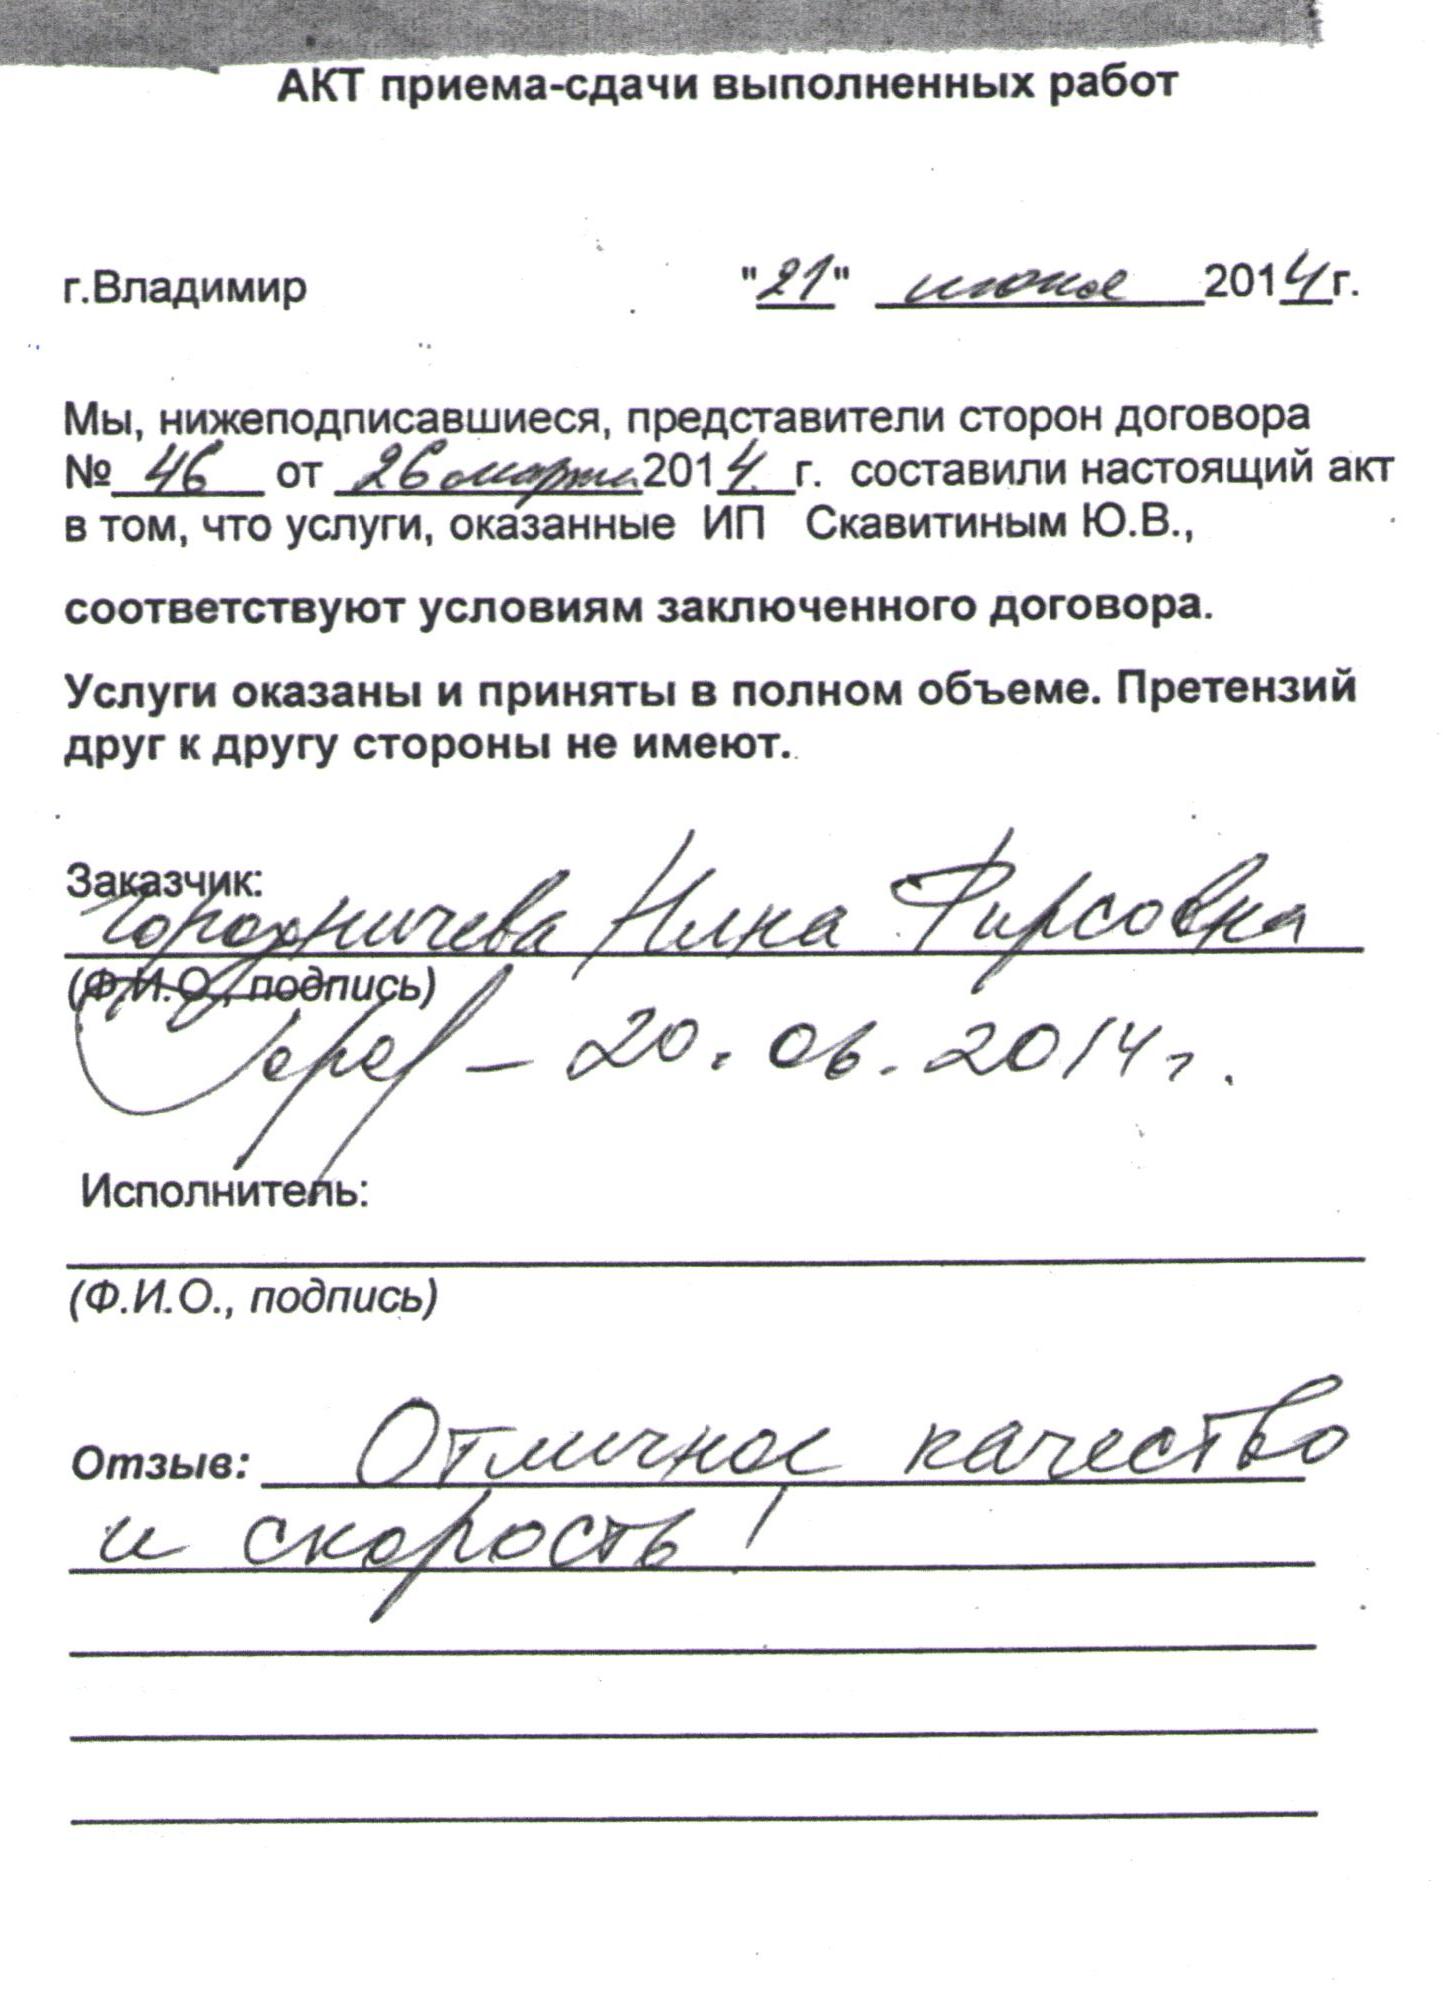 АКТ приема-сдачи выполненных работ
г.Владимир "21" июня 2014г.
Мы, нижеподписавшиеся, представители сторон договора
№ 46 от 26 марта 2014 г. составили настоящий акт
в том, что услуги, оказанные ИП Скавитиным Ю.В.,
соответствуют условиям заключенного договора.
Услуги оказаны и приняты в полном объеме. Претензий
друг к другу стороны не имеют.
Заказчик:
Нина Фирсовна
(Ф.И.О., подпись)
– 20.06.2014 г.
Исполнитель:
(Ф.И.О., подпись)
Отзыв: Отличное качество
и скорость!